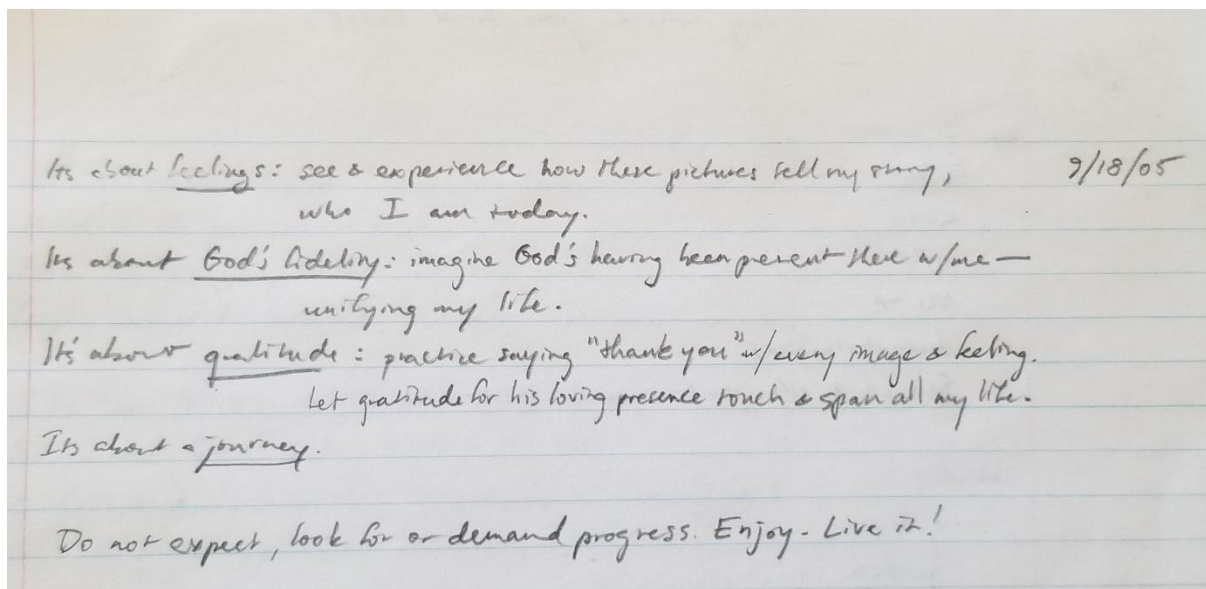 Its about feelings: see & experience how these pictures tell my story, 9/18/05
who I am today.
Its about God's fidelity: imagine God's having been present there w/me —
unifying my life.
It's about gratitude: practice saying "thank you" w/every image & feeling.
Let gratitude for his loving presence touch & span all my life.
Its about a journey.
Do not expect, look for or demand progress. Enjoy - Live it!